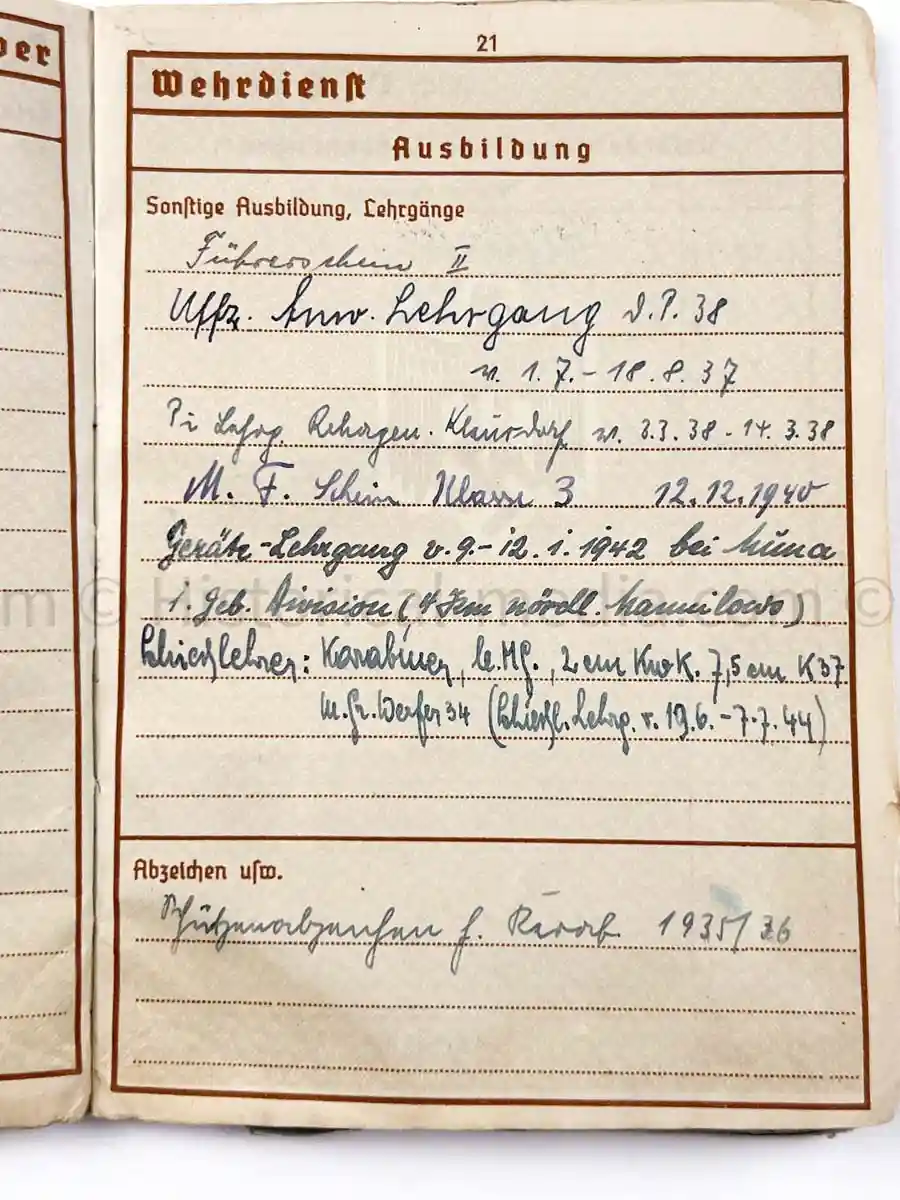 ber
21
Wehrdienst
Ausbildung
Sonstige Ausbildung, Lehrgänge
Führerschein II
Uffz. Anw. Lehrgang d.P. 38
v. 1.7. - 18.8.37
Pi Lehrg. Rehagen-Klausdorf v. 3.3.38 - 14.3.38
M. F. Schein Klasse 3 12.12.1940
Geräte-Lehrgang v. 9.-12.1.1942 bei Muna
1. Geb. Division (4 Km nördl. Mannilowo)
Schießlehrer: Karabiner, le.MG., 2 cm KwK. 7,5 cm K 37
m.Gr.Werfer 34 (Schießl. Lehrg. v. 19.6. - 7.7.44)
Abzeichen usw.
Schützenabzeichen f. Karab. 1935/36
m © Historical-media.com ©